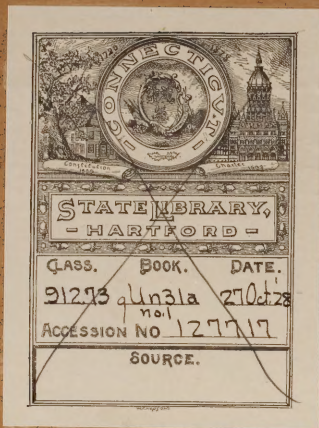 CONNECTICUT
Constitution
Charter
STATE LIBRARY,
- HARTFORD -
CLASS. BOOK. DATE.
912.73 qUn31a 27 Oct '28
no.1
ACCESSION NO 127717
SOURCE.